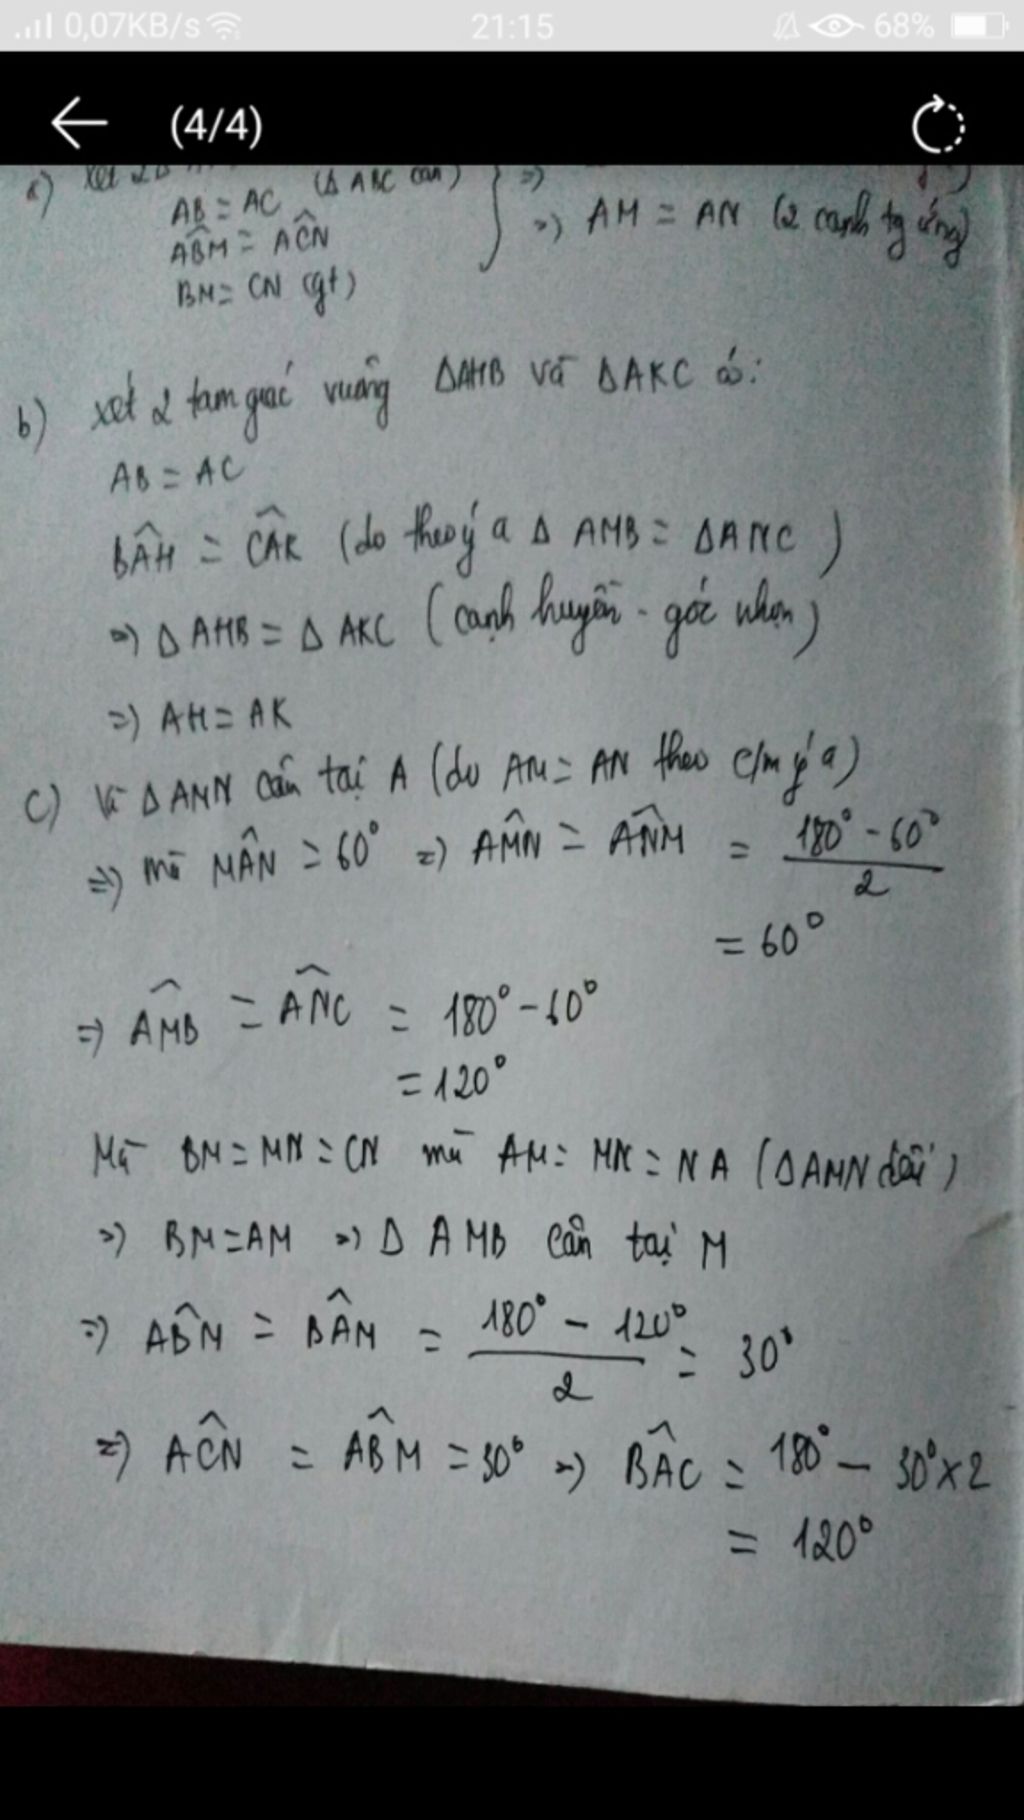 0,07KB/s 21:15 68%
(4/4)
a) xét 2Δ
AB = AC (Δ ABC cân) } =>
ABM̂ = AĈN => AM = AN (2 cạnh tg ứng)
BM = CN (gt)
b) Xét 2 tam giác vuông ΔAHB và ΔAKC có:
AB = AC
BÂH = CÂK (do theo ý a Δ AMB = ΔANC)
=> Δ AHB = Δ AKC (cạnh huyền - góc nhọn)
=> AH = AK
c) Vì Δ AMN cân tại A (do AM = AN theo c/m ý a)
=> mà MÂN = 60° => AM̂N = AN̂M = (180° - 60°)/2
= 60°
=> AM̂B = AN̂C = 180° - 60°
= 120°
Mà BM = MN = CN mà AM = MN = NA (Δ AMN đều)
=> BM = AM => Δ AMB cân tại M
=> AB̂M = BÂM = (180° - 120°)/2 = 30°
=> AĈN = AB̂M = 30° => BÂC = 180° - 30° x 2
= 120°